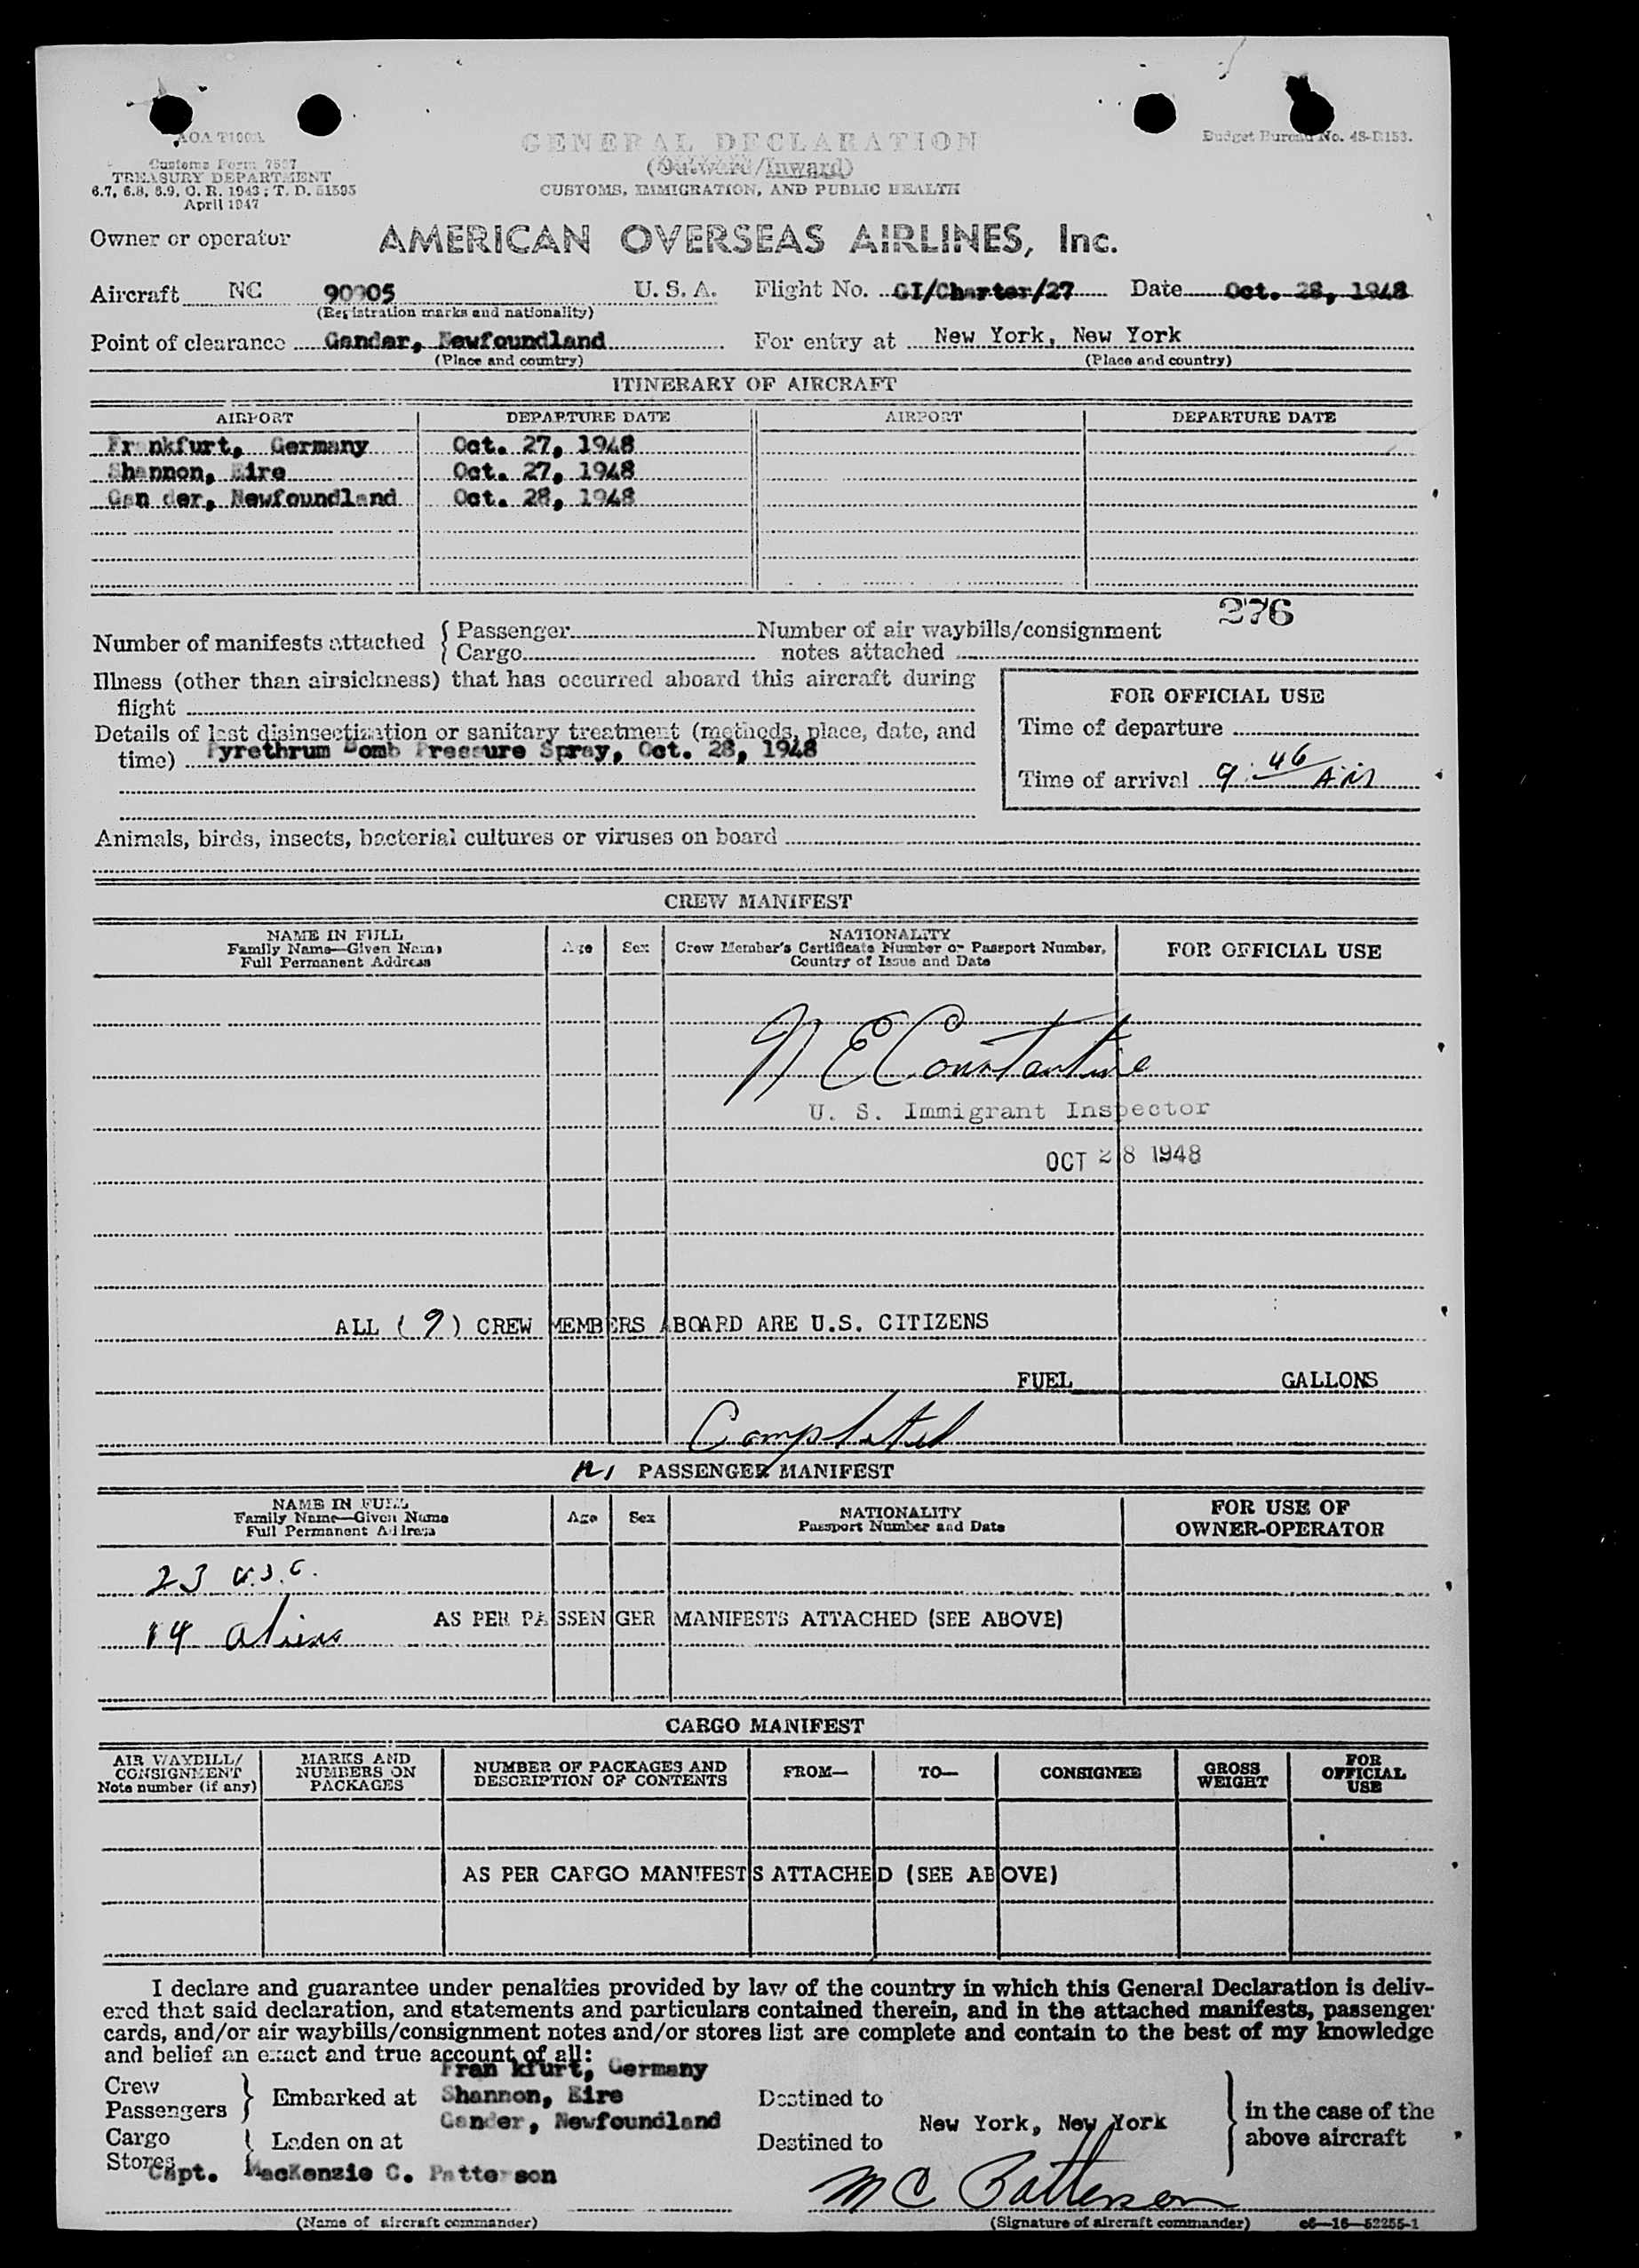 AOA T100A
GENERAL DECLARATION
Budget Bureau No. 48-R153.
Customs Form 7507
(Outward/Inward)
TREASURY DEPARTMENT
6.7, 6.8, 6.9, C. R. 1943; T. D. 51595
CUSTOMS, IMMIGRATION, AND PUBLIC HEALTH
April 1947
Owner or operator AMERICAN OVERSEAS AIRLINES, Inc.
Aircraft NC 90905 U. S. A. Flight No. GI/Charter/27 Date Oct. 28, 1948
(Registration marks and nationality)
Point of clearance Gander, Newfoundland For entry at New York, New York
(Place and country) (Place and country)
ITINERARY OF AIRCRAFT
AIRPORT DEPARTURE DATE AIRPORT DEPARTURE DATE
Frankfurt, Germany Oct. 27, 1948
Shannon, Eire Oct. 27, 1948
Gan der, Newfoundland Oct. 28, 1948
276
Number of manifests attached { Passenger Number of air waybills/consignment
Cargo notes attached
Illness (other than airsickness) that has occurred aboard this aircraft during
flight
FOR OFFICIAL USE
Details of last disinsectization or sanitary treatment (methods, place, date, and
Time of departure
time) Pyrethrum Bomb Pressure Spray, Oct. 28, 1948
Time of arrival 9:46 AM
Animals, birds, insects, bacterial cultures or viruses on board
CREW MANIFEST
NAME IN FULL Age Sex NATIONALITY FOR OFFICIAL USE
Family Name—Given Name Crew Member's Certificate Number or Passport Number,
Full Permanent Address Country of Issue and Date
N E Constantine
U. S. Immigrant Inspector
OCT 28 1948
ALL ( 9 ) CREW MEMBERS ABOARD ARE U.S. CITIZENS
FUEL GALLONS
Completed
PASSENGER MANIFEST
NAME IN FULL Age Sex NATIONALITY FOR USE OF
Family Name—Given Name Passport Number and Date OWNER-OPERATOR
Full Permanent Address
23 U.S.C.
14 aliens AS PER PASSENGER MANIFESTS ATTACHED (SEE ABOVE)
CARGO MANIFEST
AIR WAYBILL/ MARKS AND NUMBER OF PACKAGES AND FROM— TO— CONSIGNEE GROSS FOR
CONSIGNMENT NUMBERS ON DESCRIPTION OF CONTENTS WEIGHT OFFICIAL
Note number (if any) PACKAGES USE
AS PER CARGO MANIFESTS ATTACHED (SEE ABOVE)
I declare and guarantee under penalties provided by law of the country in which this General Declaration is deliv-
ered that said declaration, and statements and particulars contained therein, and in the attached manifests, passenger
cards, and/or air waybills/consignment notes and/or stores list are complete and contain to the best of my knowledge
and belief an exact and true account of all:
Fran kfurt, Germany
Crew
Passengers } Embarked at Shannon, Eire Destined to
Gander, Newfoundland New York, New York } in the case of the
Cargo
Stores { Laden on at Destined to above aircraft
Capt. MacKenzie C. Patterson M C Patterson
(Name of aircraft commander) (Signature of aircraft commander) c6—16—52255-1